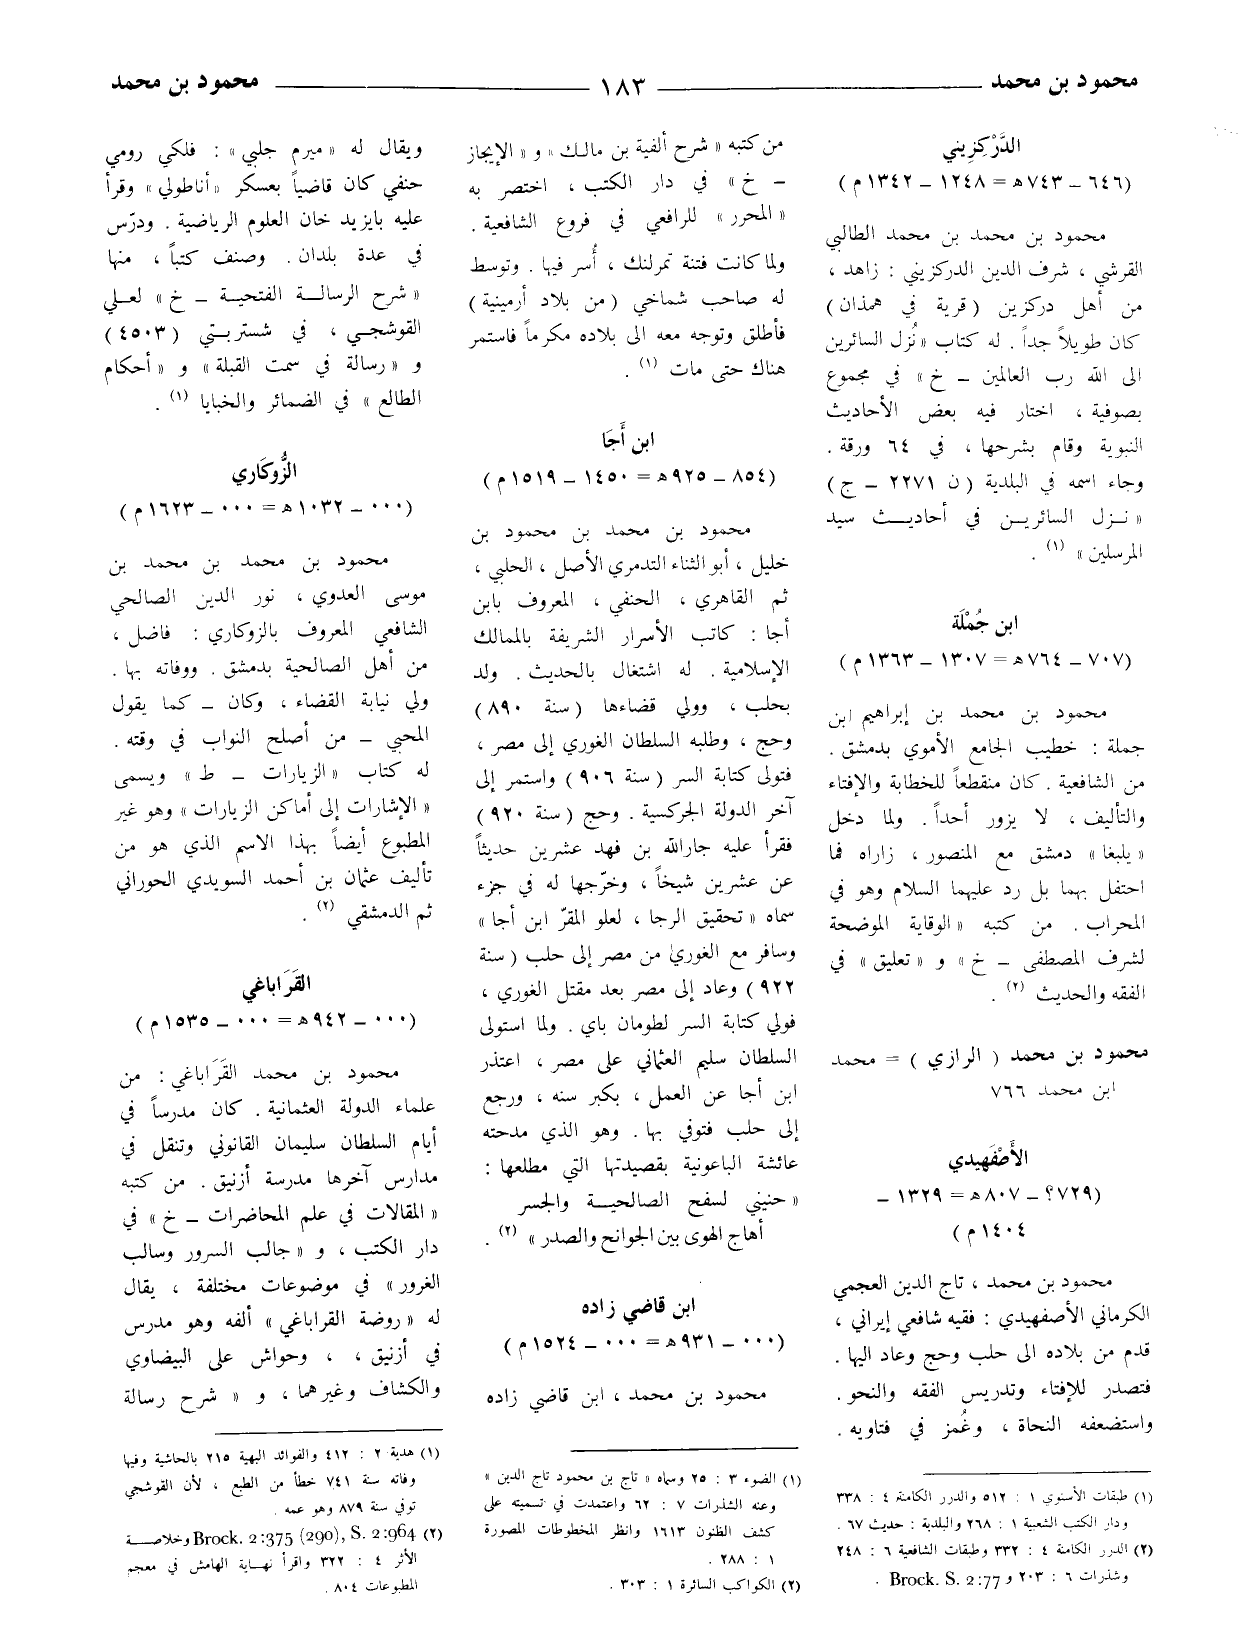 محمود بن محمد ــــ ١٨٣ ــــ محمود بن محمد
الدَّرْكِزِيني
(٦٤٦ ـ ٧٤٣ هـ = ١٢٤٨ ـ ١٣٤٢ م)
محمود بن محمد بن محمد الطالبي
القرشي ، شرف الدين الدركزيني : زاهد ،
من أهل دركزين (قرية في همذان)
كان طويلاً جداً . له كتاب «نُزل السائرين
الى الله رب العالمين ـ خ» في مجموع
بصوفية ، اختار فيه بعض الأحاديث
النبوية وقام بشرحها ، في ٦٤ ورقة .
وجاء اسمه في البلدية (ن ٢٢٧١ ـ ج)
«نـزل السائريـن في أحاديـث سيد
المرسلين» (١) .
ابن جُمْلَة
(٧٠٧ ـ ٧٦٤ هـ = ١٣٠٧ ـ ١٣٦٣ م)
محمود بن محمد بن إبراهيم ابن
جملة : خطيب الجامع الأموي بدمشق .
من الشافعية . كان منقطعاً للخطابة والإفتاء
والتأليف ، لا يزور أحداً . ولما دخل
«يلبغا» دمشق مع المنصور ، زاراه فما
احتفل بهما بل رد عليهما السلام وهو في
المحراب . من كتبه «الوقاية الموضحة
لشرف المصطفى ـ خ» و «تعليق» في
الفقه والحديث (٢) .
محمود بن محمد ( الرازي ) = محمد
ابن محمد ٧٦٦
الأَصْفَهيدي
(٧٢٩؟ ـ ٨٠٧ هـ = ١٣٢٩ ـ
١٤٠٤ م)
محمود بن محمد ، تاج الدين العجمي
الكرماني الأصفهيدي : فقيه شافعي إيراني ،
قدم من بلاده الى حلب وحج وعاد اليها .
فتصدر للإفتاء وتدريس الفقه والنحو .
واستضعفه النحاة ، وغُمز في فتاويه .
(١) طبقات الأسنوي ١ : ٥١٢ والدرر الكامنة ٤ : ٣٣٨
ودار الكتب الشعبية ١ : ٢٦٨ والبلدية : حديث ٦٧ .
(٢) الدرر الكامنة ٤ : ٣٣٢ وطبقات الشافعية ٦ : ٢٤٨
وشذرات ٦ : ٢٠٣ و Brock. S. 2:77 .
من كتبه «شرح ألفية بن مالك» و «الإيجاز
ـ خ» في دار الكتب ، اختصر به
«المحرر» للرافعي في فروع الشافعية .
ولما كانت فتنة تمرلنك ، أُسر فيها . وتوسط
له صاحب شماخي (من بلاد أرمينية)
فأطلق وتوجه معه الى بلاده مكرماً فاستمر
هناك حتى مات (١) .
ابن أَجَا
(٨٥٤ ـ ٩٢٥ هـ = ١٤٥٠ ـ ١٥١٩ م)
محمود بن محمد بن محمود بن
خليل ، أبو الثناء التدمري الأصل ، الحلبي ،
ثم القاهري ، الحنفي ، المعروف بابن
أجا : كاتب الأسرار الشريفة بالممالك
الإسلامية . له اشتغال بالحديث . ولد
بحلب ، وولي قضاءها (سنة ٨٩٠)
وحج ، وطلبه السلطان الغوري إلى مصر ،
فتولى كتابة السر (سنة ٩٠٦) واستمر إلى
آخر الدولة الجركسية . وحج (سنة ٩٢٠)
فقرأ عليه جارالله بن فهد عشرين حديثاً
عن عشرين شيخاً ، وخرّجها له في جزء
سماه «تحقيق الرجا ، لعلو المقرّ ابن أجا»
وسافر مع الغوري من مصر إلى حلب (سنة
٩٢٢) وعاد إلى مصر بعد مقتل الغوري ،
فولي كتابة السر لطومان باي . ولما استولى
السلطان سليم العثماني على مصر ، اعتذر
ابن أجا عن العمل ، بكبر سنه ، ورجع
إلى حلب فتوفي بها . وهو الذي مدحته
عائشة الباعونية بقصيدتها التي مطلعها :
«حنيني لسفح الصالحيـة والجسر
أهاج الهوى بين الجوانح والصدر» (٢) .
ابن قاضي زاده
(٠٠٠ ـ ٩٣١ هـ = ٠٠٠ ـ ١٥٢٤ م)
محمود بن محمد ، ابن قاضي زاده
(١) الضوء ٣ : ٢٥ وسماه «تاج بن محمود تاج الدين»
وعنه الشذرات ٧ : ٦٢ واعتمدت في تسميته على
كشف الظنون ١٦١٣ وانظر المخطوطات المصورة
١ : ٢٨٨ .
(٢) الكواكب السائرة ١ : ٣٠٣ .
ويقال له «ميرم جلبي» : فلكي رومي
حنفي كان قاضياً بعسكر «أناطولي» وقرأ
عليه بايزيد خان العلوم الرياضية . ودرّس
في عدة بلدان . وصنف كتباً ، منها
«شرح الرسالـة الفتحيـة ـ خ» لعلي
القوشجي ، في شستربتي (٤٥٠٣)
و «رسالة في سمت القبلة» و «أحكام
الطالع» في الضمائر والخبايا (١) .
الزُّوكَاري
(٠٠٠ ـ ١٠٣٢ هـ = ٠٠٠ ـ ١٦٢٣ م)
محمود بن محمد بن محمد بن
موسى العدوي ، نور الدين الصالحي
الشافعي المعروف بالزوكاري : فاضل ،
من أهل الصالحية بدمشق . ووفاته بها .
ولي نيابة القضاء ، وكان ـ كما يقول
المحبي ـ من أصلح النواب في وقته .
له كتاب «الزيارات ـ ط» ويسمى
«الإشارات إلى أماكن الزيارات» وهو غير
المطبوع أيضاً بهذا الاسم الذي هو من
تأليف عثمان بن أحمد السويدي الحوراني
ثم الدمشقي (٢) .
القَرَاباغي
(٠٠٠ ـ ٩٤٢ هـ = ٠٠٠ ـ ١٥٣٥ م)
محمود بن محمد القَرَاباغي : من
علماء الدولة العثمانية . كان مدرساً في
أيام السلطان سليمان القانوني وتنقل في
مدارس آخرها مدرسة أزنيق . من كتبه
«المقالات في علم المحاضرات ـ خ» في
دار الكتب ، و «جالب السرور وسالب
الغرور» في موضوعات مختلفة ، يقال
له «روضة القراباغي» ألفه وهو مدرس
في أزنيق ، ، وحواش على البيضاوي
والكشاف وغيرهما ، و «شرح رسالة
(١) هدية ٢ : ٤١٢ والفوائد البهية ٢١٥ بالحاشية وفيها
وفاته سنة ٧٤١ خطأ من الطبع ، لأن القوشجي
توفي سنة ٨٧٩ وهو عمه .
(٢) Brock. 2:375 (290), S. 2:964 وخلاصـة
الأثر ٤ : ٣٢٢ واقرأ نهـاية الهامش في معجم
المطبوعات ٨٠٤ .